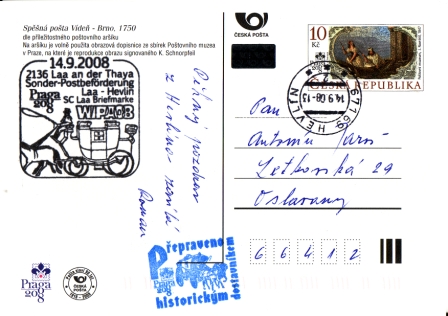 Spěšná pošta Vídeň - Brno, 1750
dle příležitostného poštovního aršíku
Na aršíku je volně použita obrazová dopisnice ze sbírek Poštovního musea
v Praze, na které je reprodukce obrazu signovaného K. Schnorpfeil
14.9.2008
2136 Laa an der Thaya
Sonder-Postbeförderung
Laa - Hevlín
SC Laa Briefmarke
Praga
2008
WIPA08
Pěkný pozdrav
z Hevlína zasílá
Roman
Přepraveno
historickým
dostavníkem
Praga
2008
ČESKÁ
POŠTA
ČESKÁ POŠTA
10
Kč
ČESKÁ REPUBLIKA
671 69
14.9.08-13
HEVLÍN
Pan
Antonín Jaroš
Letkovská 29
Oslavany
6 6 4 1 2